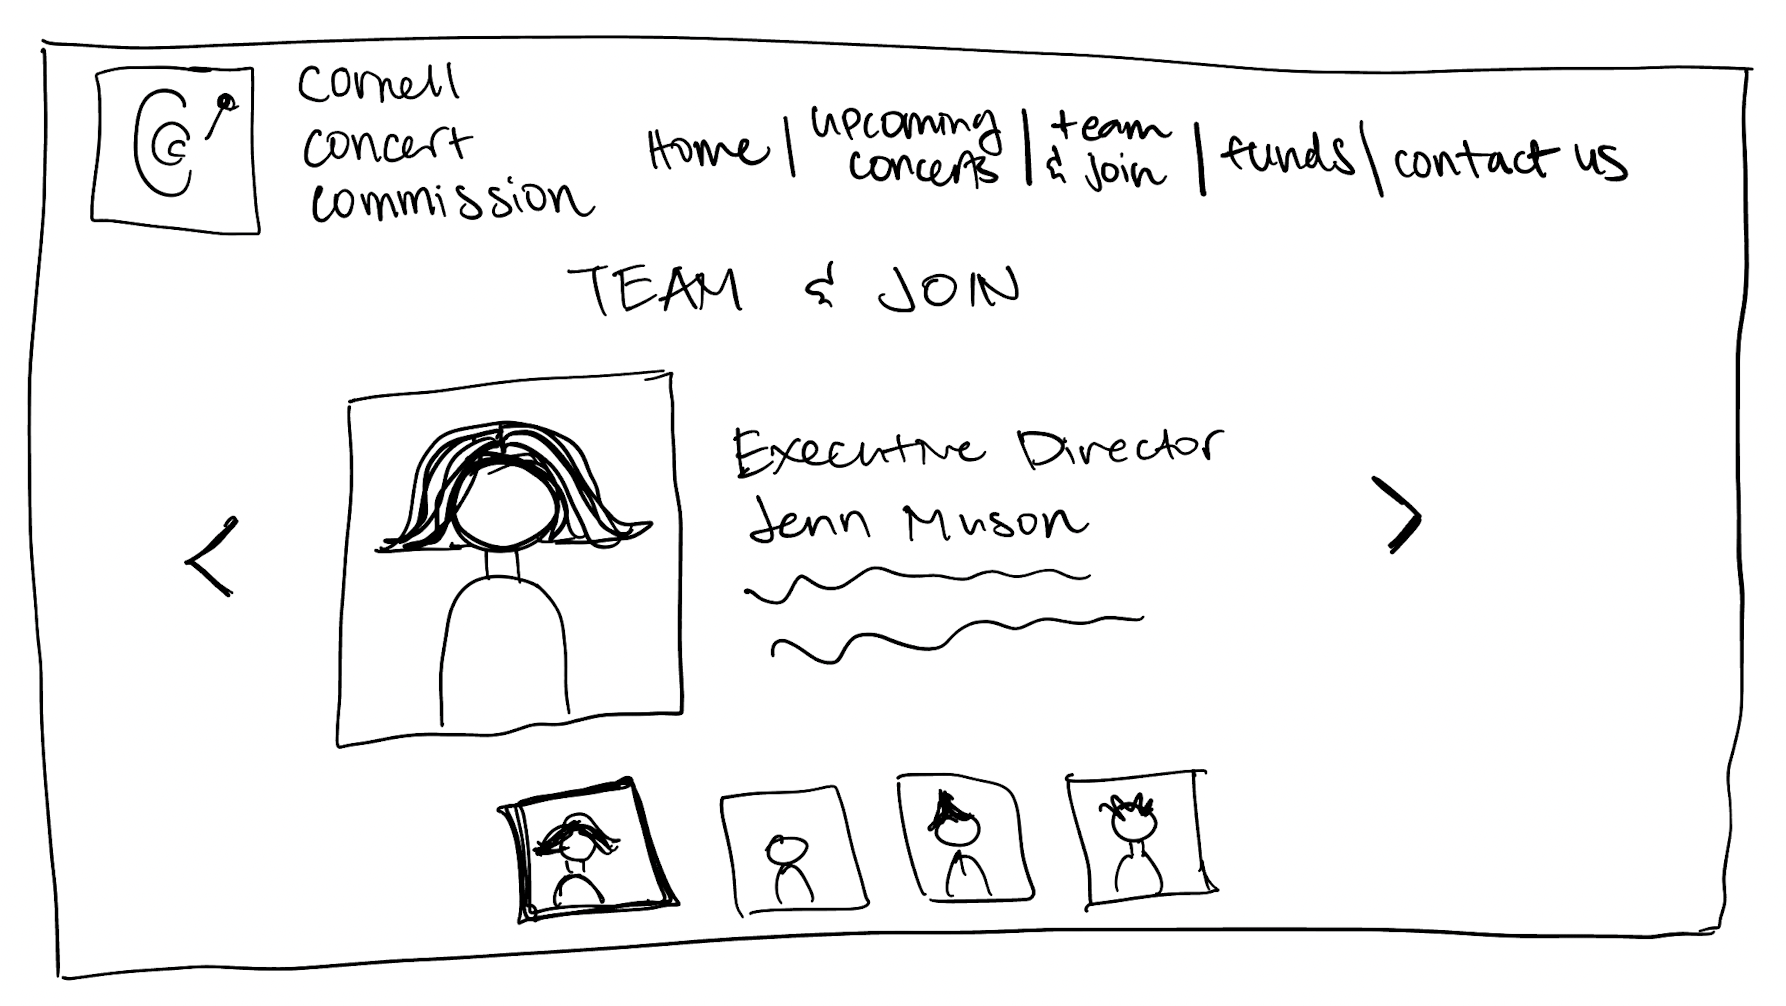 Cornell
concert
commission
Home | upcoming concerts | team & join | funds | contact us
TEAM & JOIN
Executive Director
Jenn Muson